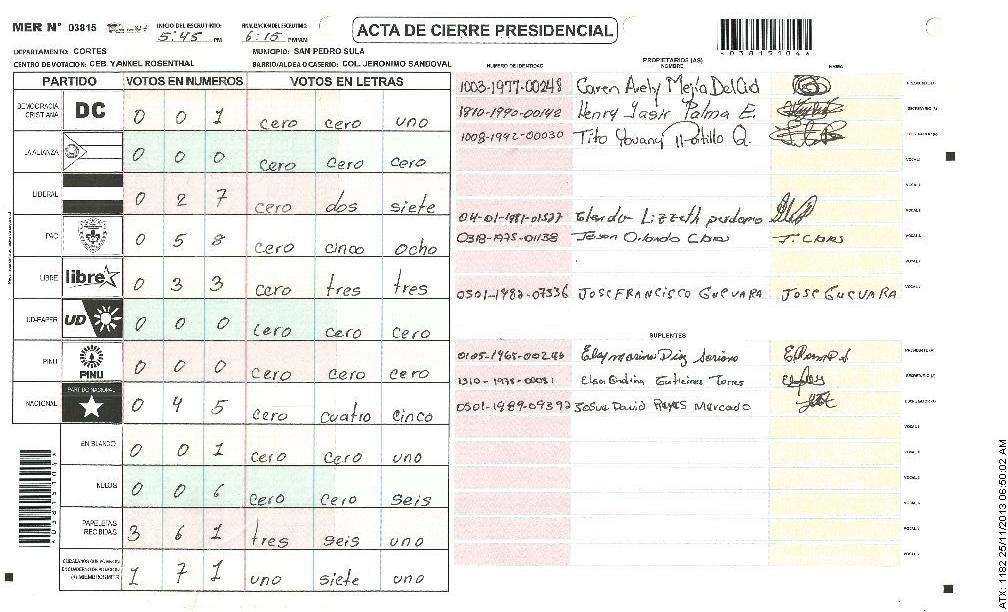 MER N° 03815 INICIO DEL ESCRUTINIO: 5:45 PM FINALIZACION DEL ESCRUTINIO: 6:15 PM/AM
ACTA DE CIERRE PRESIDENCIAL
DEPARTAMENTO: CORTES MUNICIPIO: SAN PEDRO SULA
CENTRO DE VOTACION: CEB. YANKEL ROSENTHAL BARRIO/ALDEA O CASERIO: COL. JERONIMO SANDOVAL
PARTIDO VOTOS EN NUMEROS VOTOS EN LETRAS
DEMOCRACIA CRISTIANA DC 0 0 1 cero cero uno
LA ALIANZA 0 0 0 cero cero cero
LIBERAL 0 2 7 cero dos siete
PAC 0 5 8 cero cinco ocho
LIBRE libre 0 3 3 cero tres tres
UD-FAPER UD 0 0 0 cero cero cero
PINU PINU 0 0 0 cero cero cero
NACIONAL PARTIDO NACIONAL 0 4 5 cero cuatro cinco
EN BLANCO 0 0 1 cero cero uno
NULOS 0 0 6 cero cero seis
PAPELETAS RECIBIDAS 3 6 1 tres seis uno
1 7 1 uno siete uno
NUMERO DE IDENTIDAD PROPIETARIOS (AS) NOMBRE FIRMA
1003-1977-00248 Caren Avely Mejía Del Cid
Henry Yasir Palma E.
1008-1992-00030 Tito Yovany Portillo Q.
04-01-1981-01527 Lizzeth perdomo
0318-1975-01138 Jeson Orlando
0501-1982-07336 JOSE FRANCISCO GUEVARA JOSE GUEVARA
SUPLENTES
0105-1965-00246 Elsy Marina Diaz Soriano
Elsa Ondina Gutierrez Torres
0501-1989-09392 Josue David Reyes Mercado
03815104
ATX: 1182 25/11/2013 06:50:02 AM